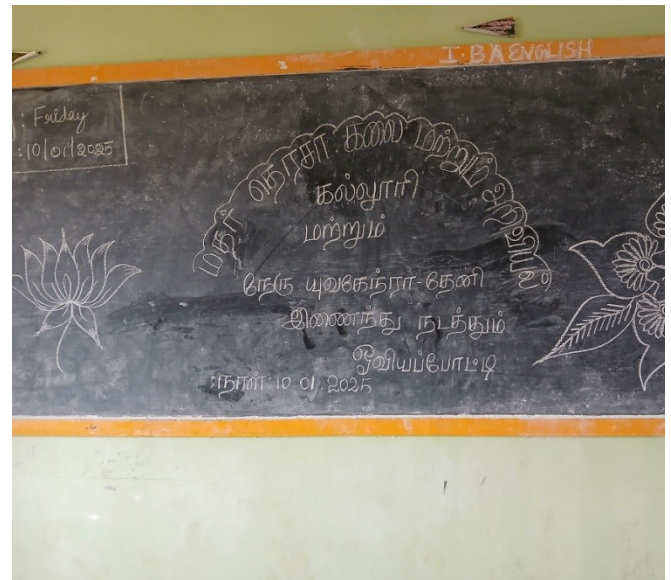 I. BA ENGLISH
: Friday
: 10/01/2025
மதர் தெரசா கலை மற்றும் அறிவியல்
கல்லூரி
மற்றும்
நேரு யுவகேந்ரா - தேனி
இணைந்து நடத்தும்
ஓவியப்போட்டி
நாள்: 10 01 2025